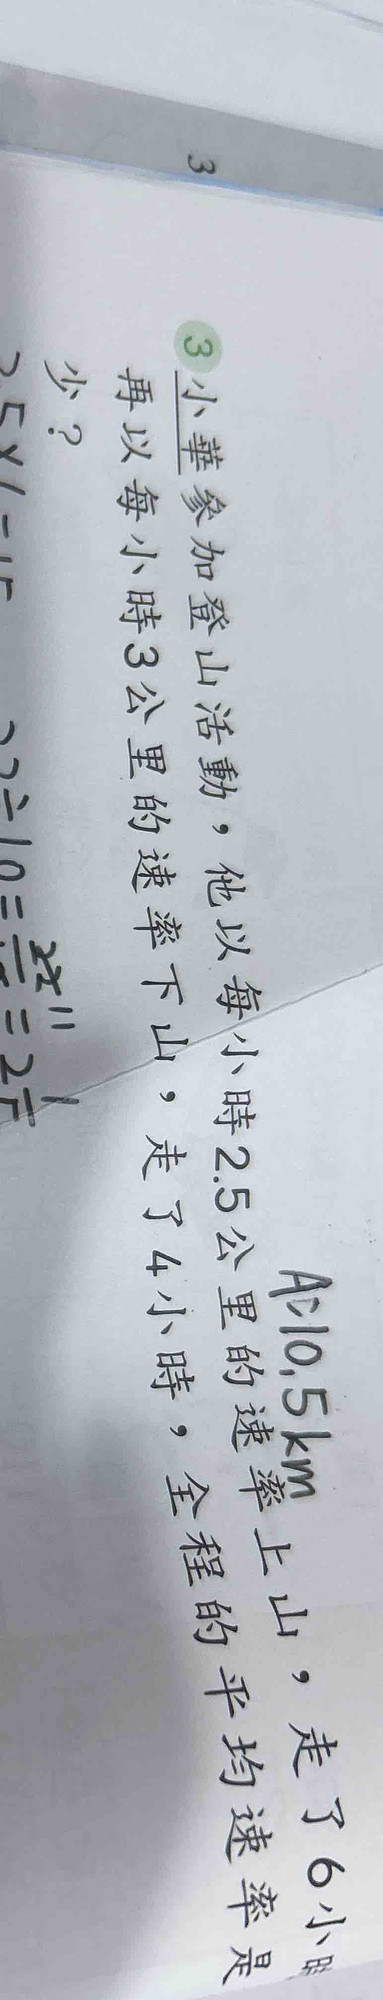 3
A:10.5km
3 小華參加登山活動，他以每小時2.5公里的速率上山，走了6小時
再以每小時3公里的速率下山，走了4小時，全程的平均速率是
少？